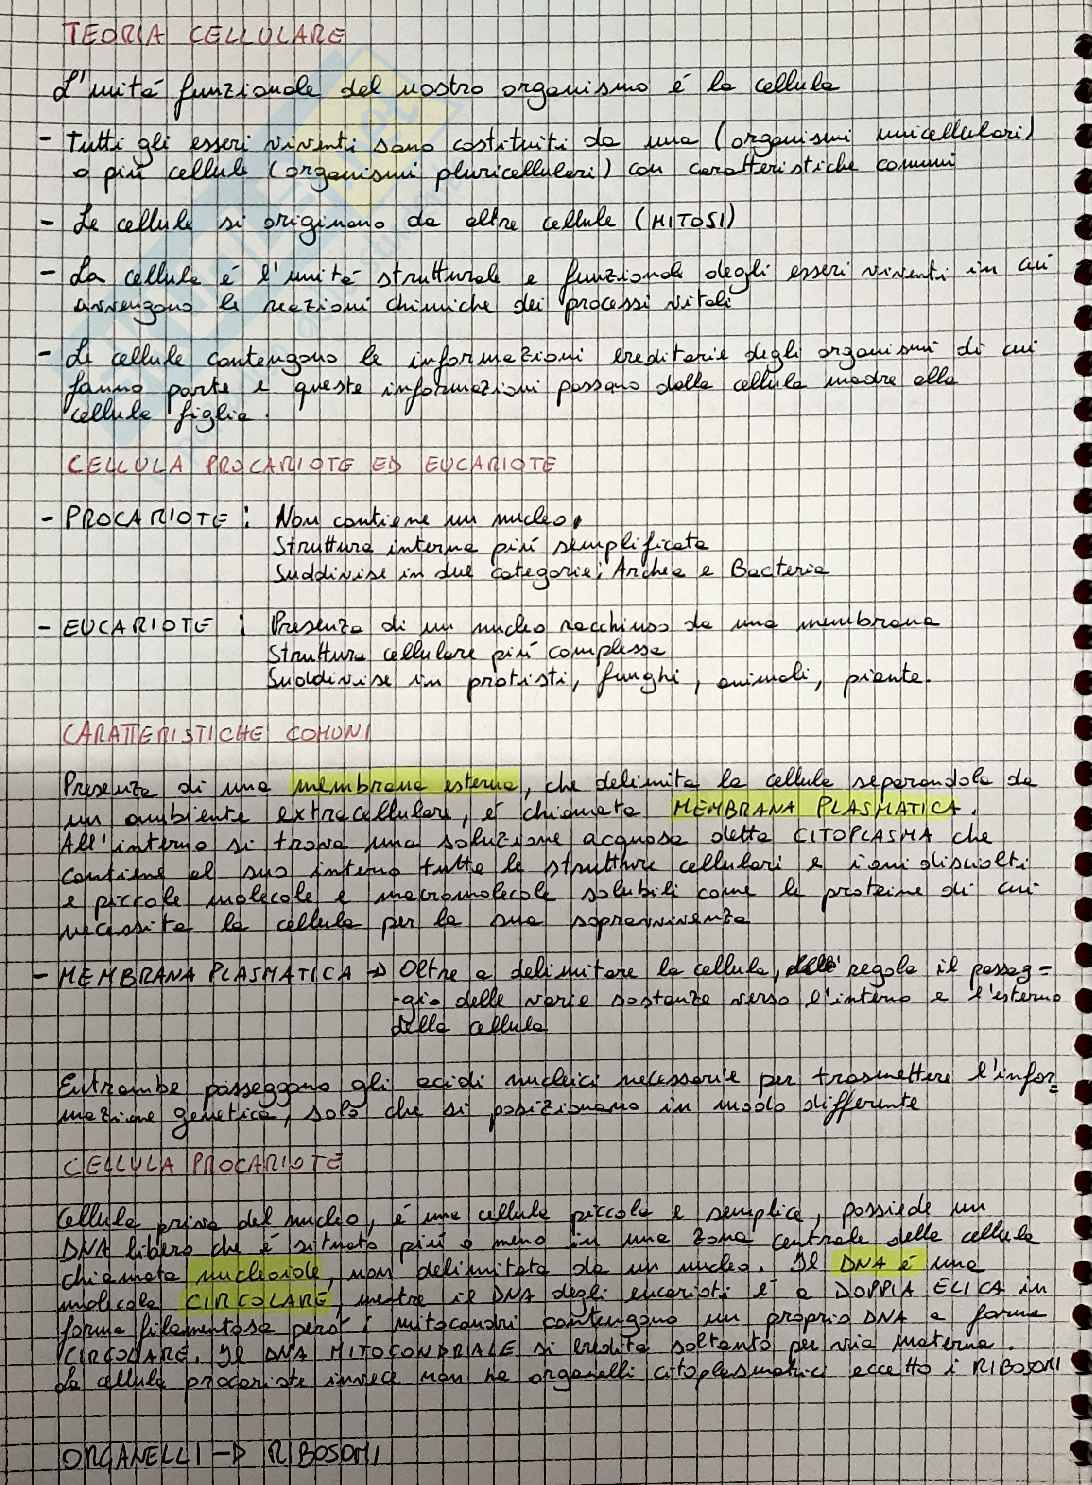 TEORIA CELLULARE
L'unità funzionale del nostro organismo é la cellula
- Tutti gli esseri viventi sono costituiti da una (organismi unicellulari)
o più cellule (organismi pluricellulari) con caratteristiche comuni
- Le cellule si originano da altre cellule (MITOSI)
- La cellula é l'unità strutturale e funzionale degli esseri viventi in cui
avvengono le reazioni chimiche dei processi vitali
- Le cellule contengono le informazioni ereditarie degli organismi di cui
fanno parte e queste informazioni passano dalla cellula madre alla
cellula figlia.
CELLULA PROCARIOTE ED EUCARIOTE
- PROCARIOTE: Non contiene un nucleo.
Struttura interna più semplificata
Suddivise in due categorie: Archea e Bacteria
- EUCARIOTE : Presenza di un nucleo racchiuso da una membrana
Struttura cellulare più complessa
Suddivise in protisti, funghi, animali, piante.
CARATTERISTICHE COMUNI
Presenza di una membrana esterna, che delimita la cellula separandola da
un ambiente extracellulare, é chiamata MEMBRANA PLASMATICA.
All'interno si trova una soluzione acquosa detta CITOPLASMA che
contiene al suo interno tutte le strutture cellulari e ioni disciolti
e piccole molecole e macromolecole solubili come le proteine di cui
necessita la cellula per la sua sopravvivenza
- MEMBRANA PLASMATICA → Oltre a delimitare la cellula, regola il passag=
gio delle varie sostanze verso l'interno e l'esterno
della cellula
Entrambe posseggono gli acidi nucleici necessarie per trasmettere l'infor=
mazione genetica, solo che si posizionano in modo differente
CELLULA PROCARIOTE
Cellula priva del nucleo, é una cellula piccola e semplice, possiede un
DNA libero che é situato più o meno in una zona centrale della cellula
chiamata nucleoide, non delimitata da un nucleo. Il DNA é una
molecola CIRCOLARE, mentre il DNA degli eucarioti é a DOPPIA ELICA in
forma filamentosa però i mitocondri contengono un proprio DNA a forma
CIRCOLARE. Il DNA MITOCONDRIALE si eredita soltanto per via materna.
La cellula procariote invece non ha organelli citoplasmatici eccetto i RIBOSOMI
ORGANELLI → RIBOSOMI